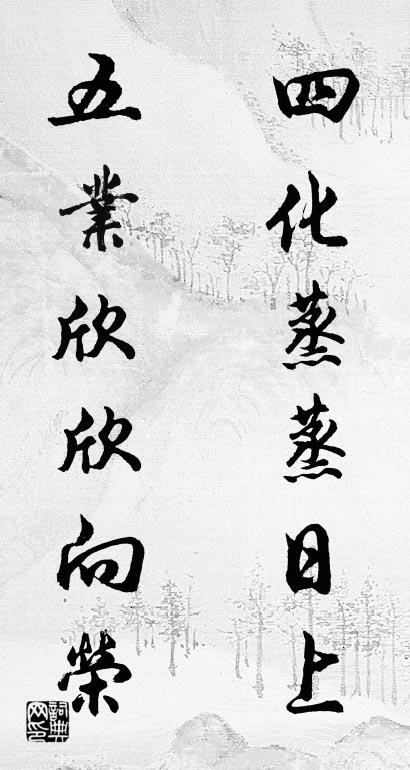 四化蒸蒸日上
五業欣欣向榮